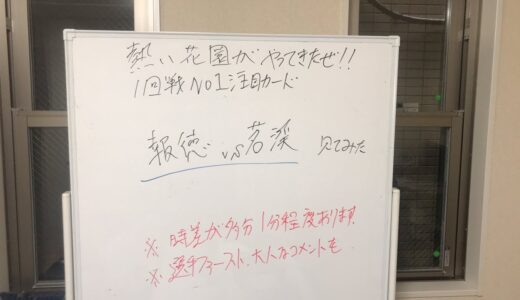 熱い花園がやってきたぜ!!
1回戦NO1注目カード
報徳 vs 茗溪 見てみた
※ 時差が多分1分程度あります
※ 選手ファースト、大人なコメントを